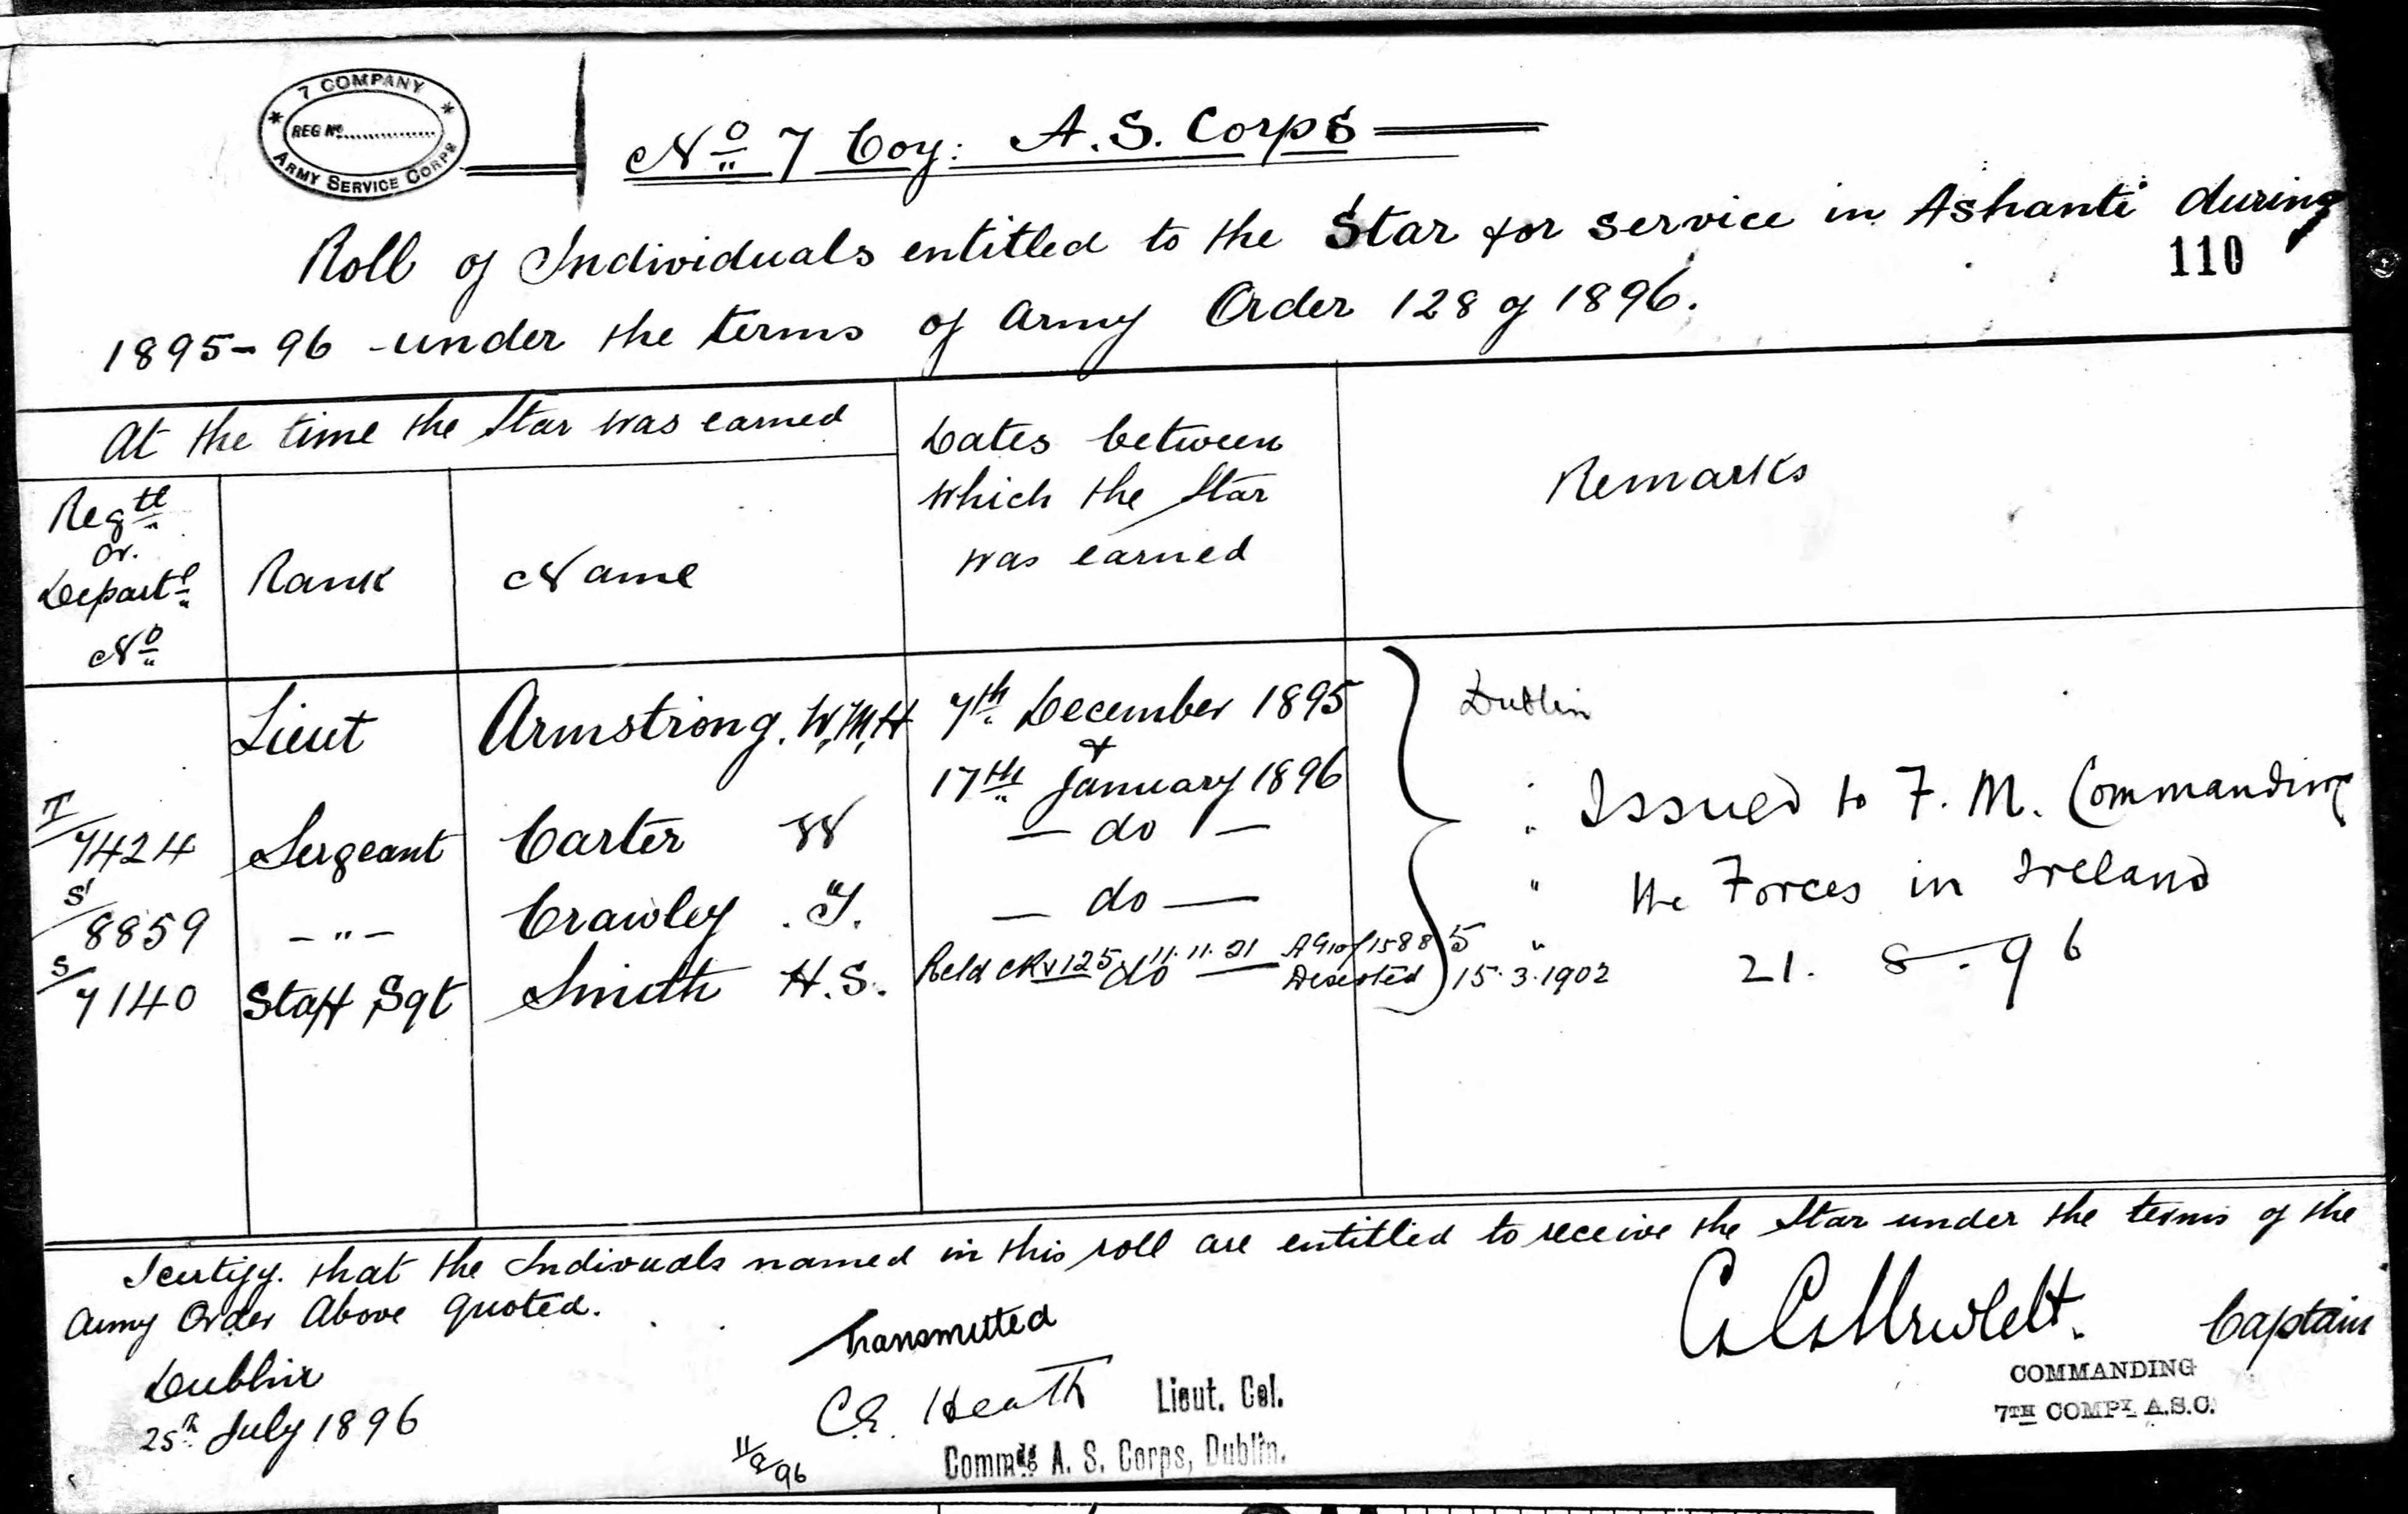 7 COMPANY
REG No...............
ARMY SERVICE CORPS
No 7 Coy: A.S. Corps
Roll of Individuals entitled to the Star for service in Ashanti during
110
1895-96 under the terms of Army Order 128 of 1896.
At the time the Star was earned
Regtl or Departl No
Rank
Name
Dates between which the Star was earned
Remarks
Lieut Armstrong. W.M.H 7th December 1895 & 17th January 1896 Dublin
T/7424 Sergeant Carter W — do — " Issued to F. M. Commanding
S/8859 - " - Crawley . T. — do — " the Forces in Ireland
S/7140 Staff Sgt Smith H.S. do — " 21. 8. 96
11.11.21
Deserted 15.3.1902
I certify that the Indivuals named in this roll are entitled to receive the Star under the terms of the
Army Order above quoted.
Dublin
25th July 1896
Transmitted
C.E. Heath Lieut. Col.
Commdg A. S. Corps, Dublin.
11/8/96
Captain
COMMANDING
7TH COMPY A.S.C.